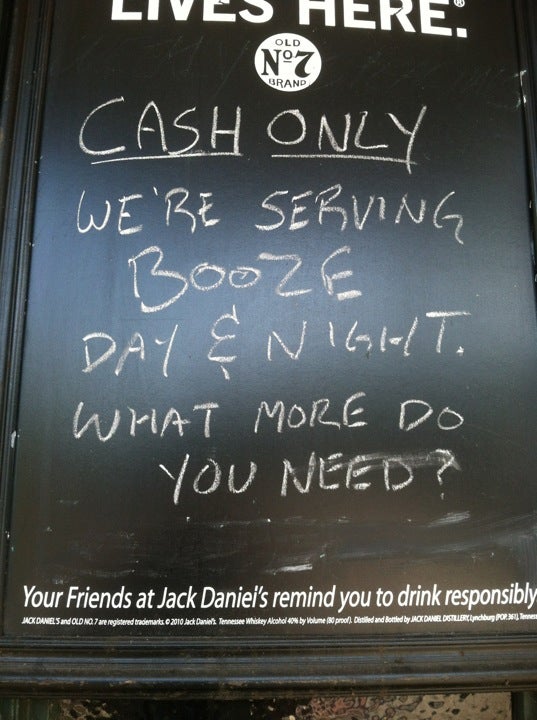 LIVES HERE.®
OLD
Nº7
BRAND
CASH ONLY
WE'RE SERVING
BOOZE
DAY & NIGHT.
WHAT MORE DO
YOU NEED?
Your Friends at Jack Daniel's remind you to drink responsibly
JACK DANIEL'S and OLD NO. 7 are registered trademarks. © 2010 Jack Daniel's. Tennessee Whiskey Alcohol 40% by Volume (80 proof). Distilled and Bottled by JACK DANIEL DISTILLERY, Lynchburg (POP. 361), Tennes